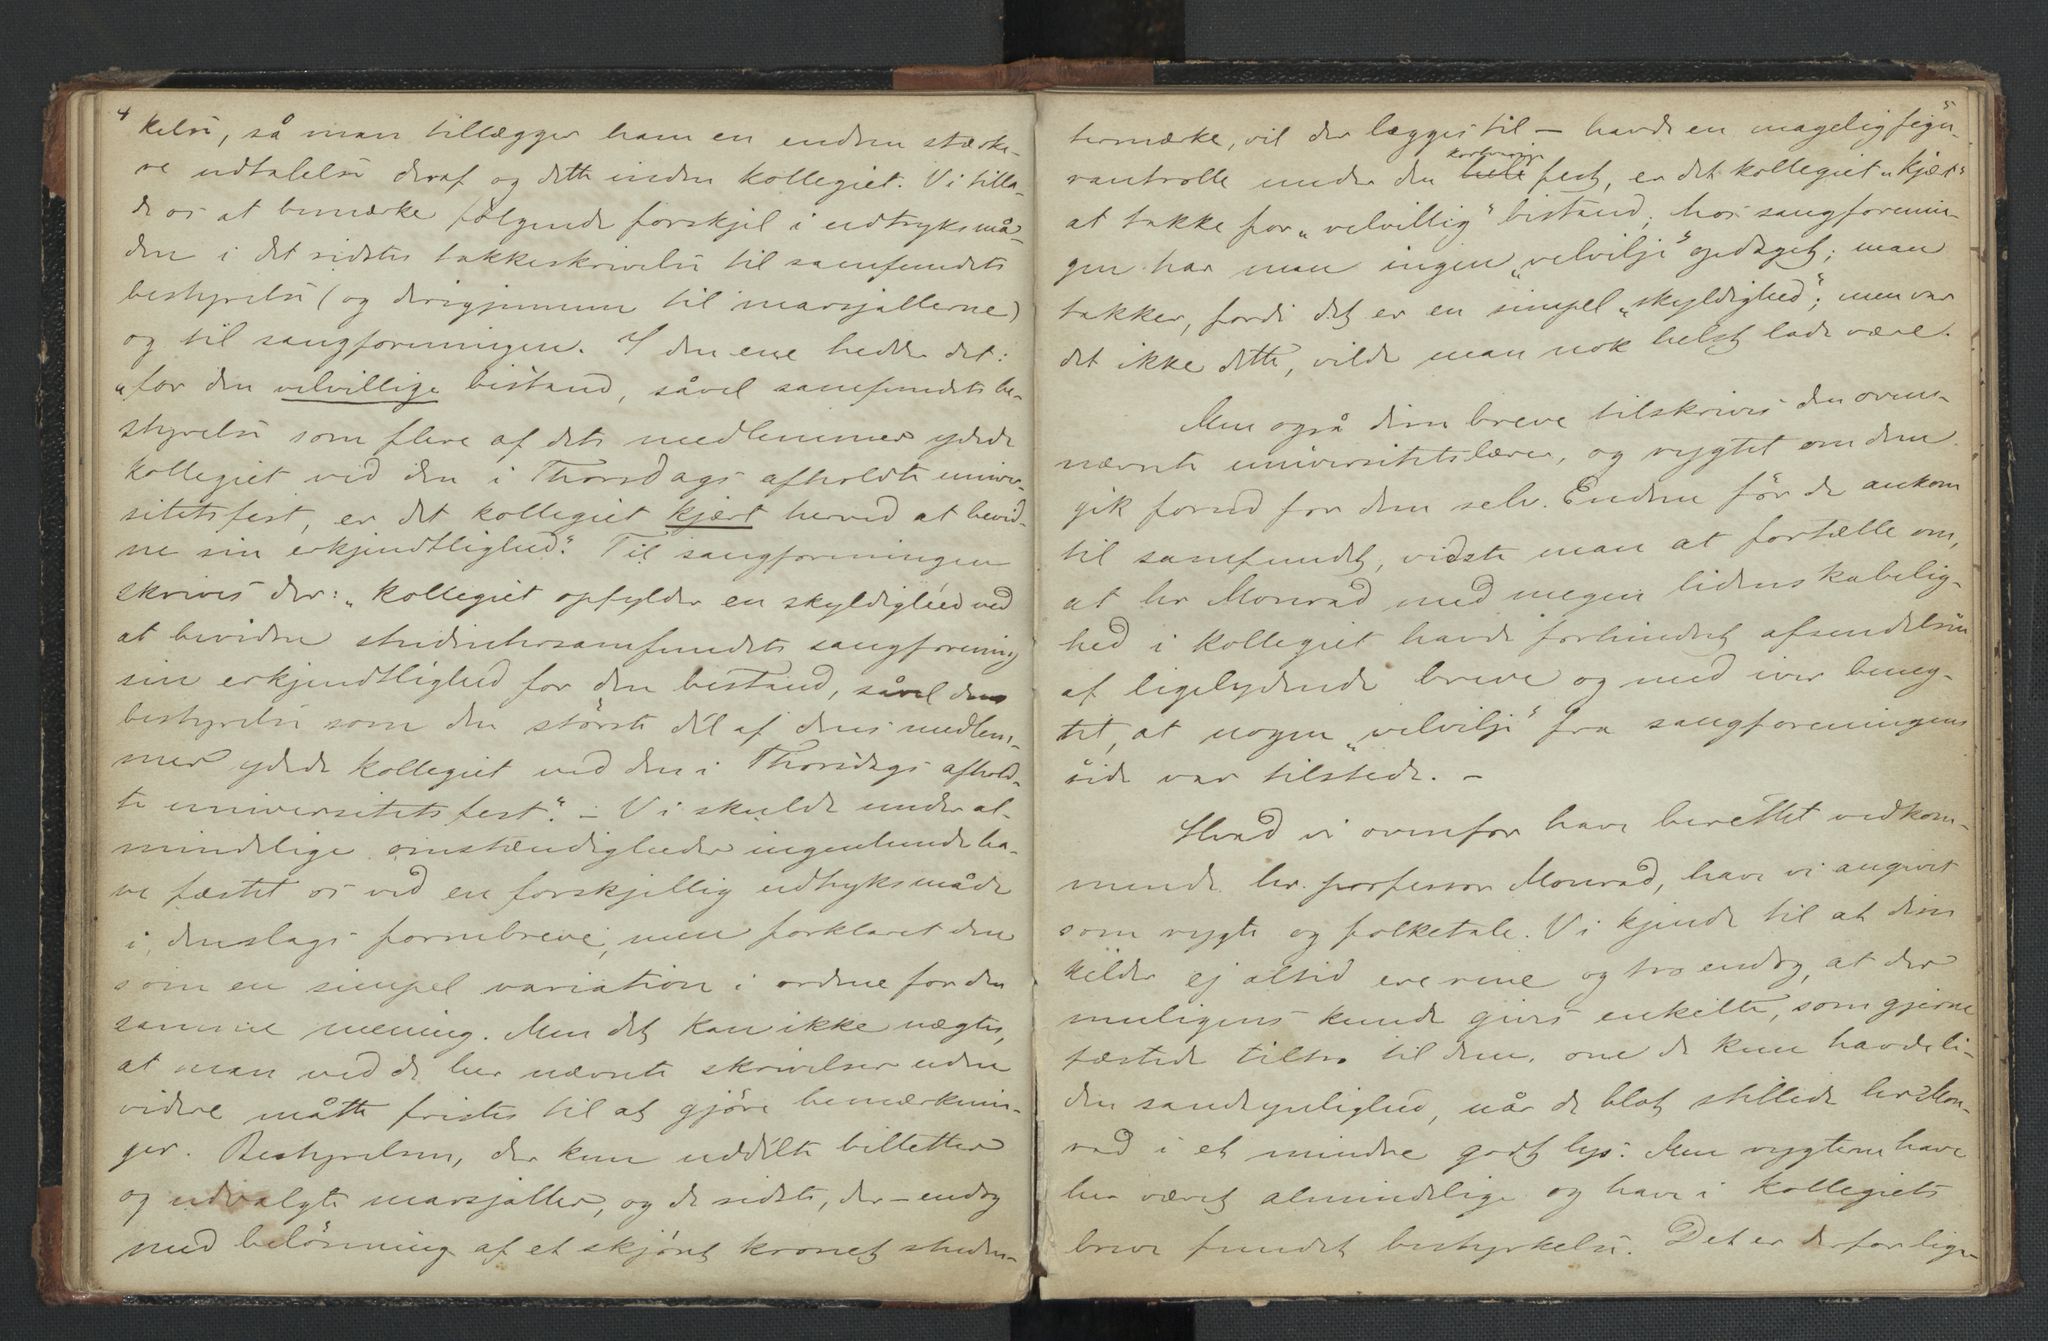 4
kelse, så man tillægger ham en endnu stærke-
re udtalelse deraf og dette inden kollegiet. Vi tilla-
de os at bemærke følgende forskjel i udtryksmå-
den i det sidste takkeskrivelse til samfundets
bestyrelse (og derigjennem til marsjallerne)
og til sangforeningen. I den ene hedder det:
"for den velvillige bistand, såvel samfundets be-
styrelse som flere af dets medlemmer ydede
kollegiet ved den i Thorsdags afholdte univer-
sitetsfest, er det kollegiet kjært herved at bevid-
ne sin erkjendtlighed." Til sangforeningen
skrives der: "kollegiet opfylder en skyldighed ved
at bevidne studentersamfundets sangforening
sin erkjendtlighed for den bistand, såvel dens
bestyrelse som den störste del af dens medlem-
mer ydede kollegiet ved den i Thorsdags afhold-
te universitetsfest". – Vi skulde under al-
mindelige omstændigheder ingenlunde ha-
ve fæstet os ved en forskjellig udtryksmåde
i denslags formbreve, men forklaret den
som en simpel variation i ordene for den
samme mening. Men det kan ikke nægtes,
at man ved de her nævnte skrivelser uden
videre måtte fristes til at gjöre bemærknin-
ger. Bestyrelsen, der kun uddelte billetter
og udvalgte marsjaller, og de sidste, der – endog
med belönning af et skjönt kronet studen-
5
termærke, vil der lægges til – havde en magelig figu-
rantrolle under den hele fest, er det kollegiet "kjært"
at takke for "velvillig" bistand; hos sangforenin-
gen har man ingen "velvilje" opdaget; man
takker, fordi det er en simpel "skyldighed"; men var
det ikke dette, vilde man nok helst lade være.
Men også disse breve tilskrives den oven-
nævnte universitetslærer, og rygtet om dem
gik forud for dem selv. Endnu för de ankom
til samfundet, vidste man at fortælle om,
at hr Monrad med megen lidenskabelig-
hed i kollegiet havde forhindret afsendelsen
af ligelydende breve og med iver beneg-
tet, at nogen "velvilje" fra sangforeningens
side var tilstede. –
Hvad vi ovenfor have berettet vedkom-
mende hr. professor Monrad, have vi angivet
som rygte og folketale. Vi kjende til at disse
kilder ej altid ere rene og tro endog, at der
muligens kunde gives enkelte, som gjerne
fæstede tiltro til dem, om de kun havde li-
den sandsynlighed, når de blot stillede hr Mon-
rad i et mindre godt lys. Men rygterne have
her været almindelige og have i kollegiets
breve fundet bestyrkelse. Det er derfor lige-